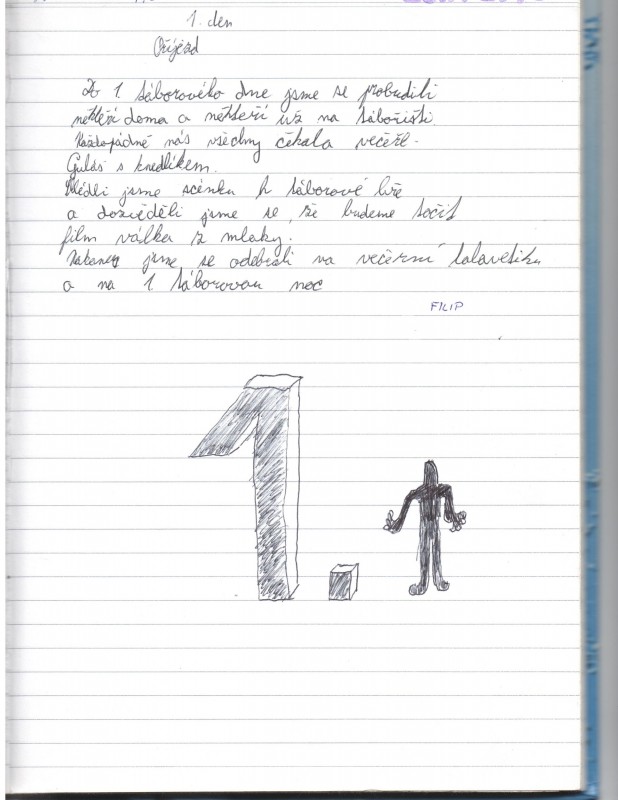 1. den
Příjezd
Do 1. táborového dne jsme se probudili
někteří doma a někteří už na tábořišti.
Každopádně nás všechny čekala večeře.
Guláš s knedlíkem.
Viděli jsme scénku k táborové hře
a dozvěděli jsme se, že budeme točit
film válka z mlaky.
Nakonec jsme se odebrali na večerní
a na 1 táborovou noc
FILIP
1.